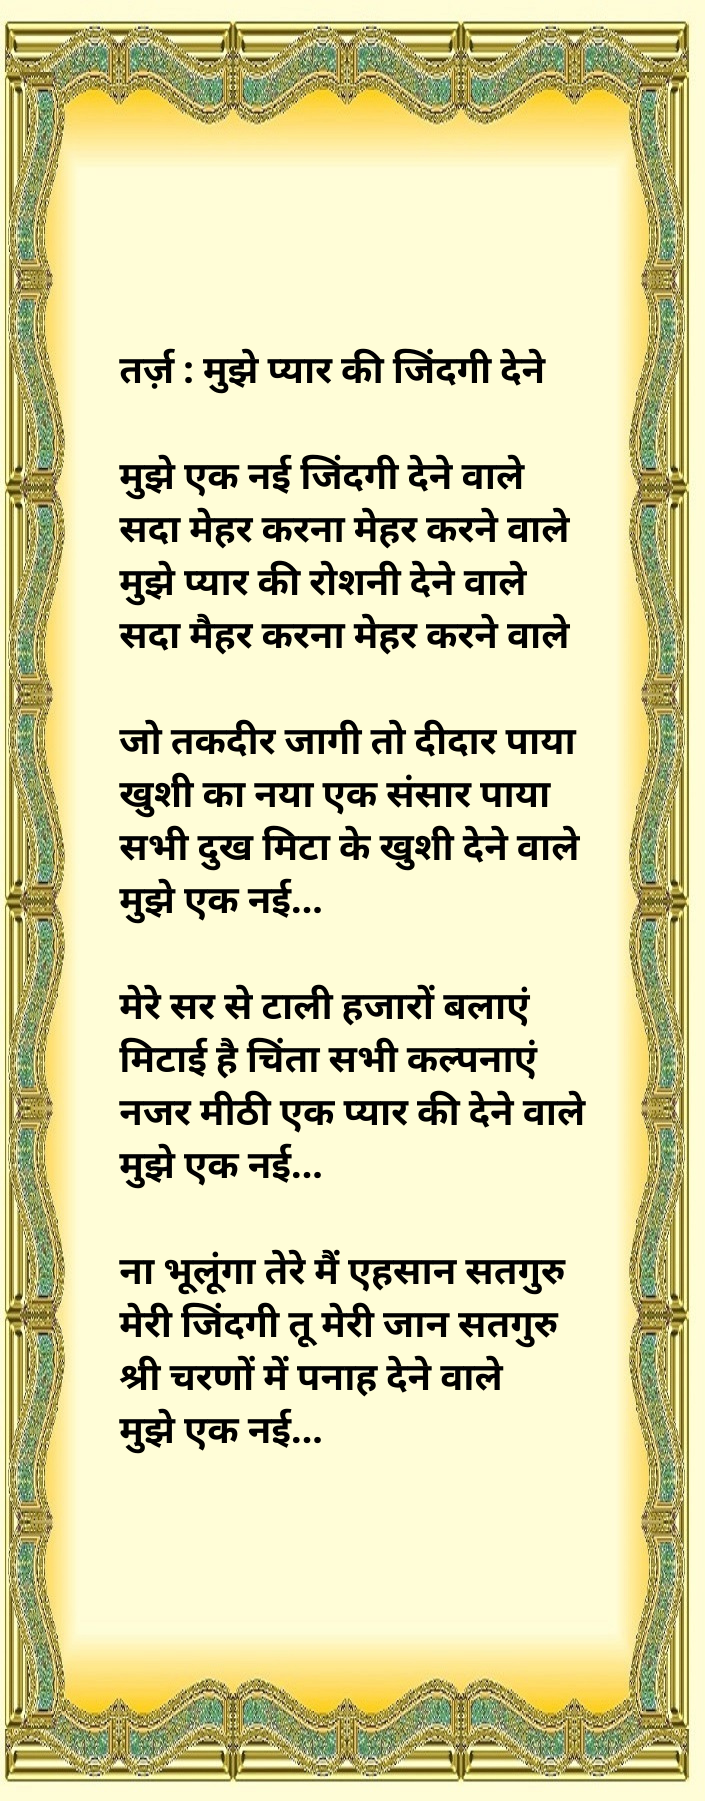 तर्ज़ : मुझे प्यार की जिंदगी देने
मुझे एक नई जिंदगी देने वाले
सदा मेहर करना मेहर करने वाले
मुझे प्यार की रोशनी देने वाले
सदा मैहर करना मेहर करने वाले
जो तकदीर जागी तो दीदार पाया
खुशी का नया एक संसार पाया
सभी दुख मिटा के खुशी देने वाले
मुझे एक नई...
मेरे सर से टाली हजारों बलाएं
मिटाई है चिंता सभी कल्पनाएं
नजर मीठी एक प्यार की देने वाले
मुझे एक नई...
ना भूलूंगा तेरे मैं एहसान सतगुरु
मेरी जिंदगी तू मेरी जान सतगुरु
श्री चरणों में पनाह देने वाले
मुझे एक नई...